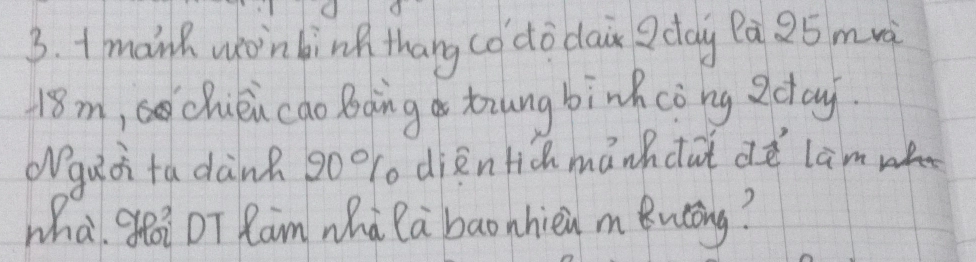 3. 1 mảnh vườn hình thang có độ dài 2 đáy là 25 m và
18 m, chiều cao bằng trung bình cộng 2 đáy.
Người ta dành 20% diện tích mảnh đất để làm
nhà. Hỏi DT làm nhà là bao nhiêu m vuông?